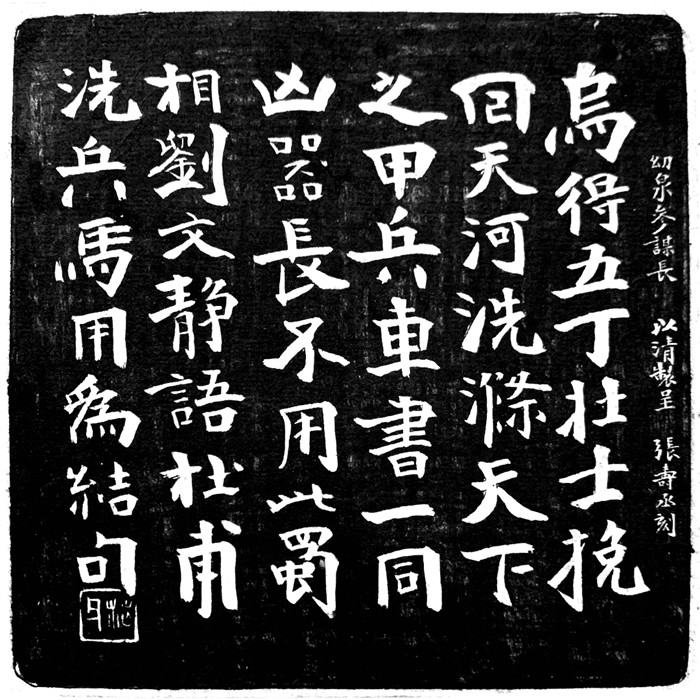 幼泉參謀長 以清製呈 張壽丞刻
烏得五丁壯士挽
回天河洗滌天下
之甲兵車書一同
凶器長不用此蜀
相劉文靜語杜甫
洗兵馬用為結句